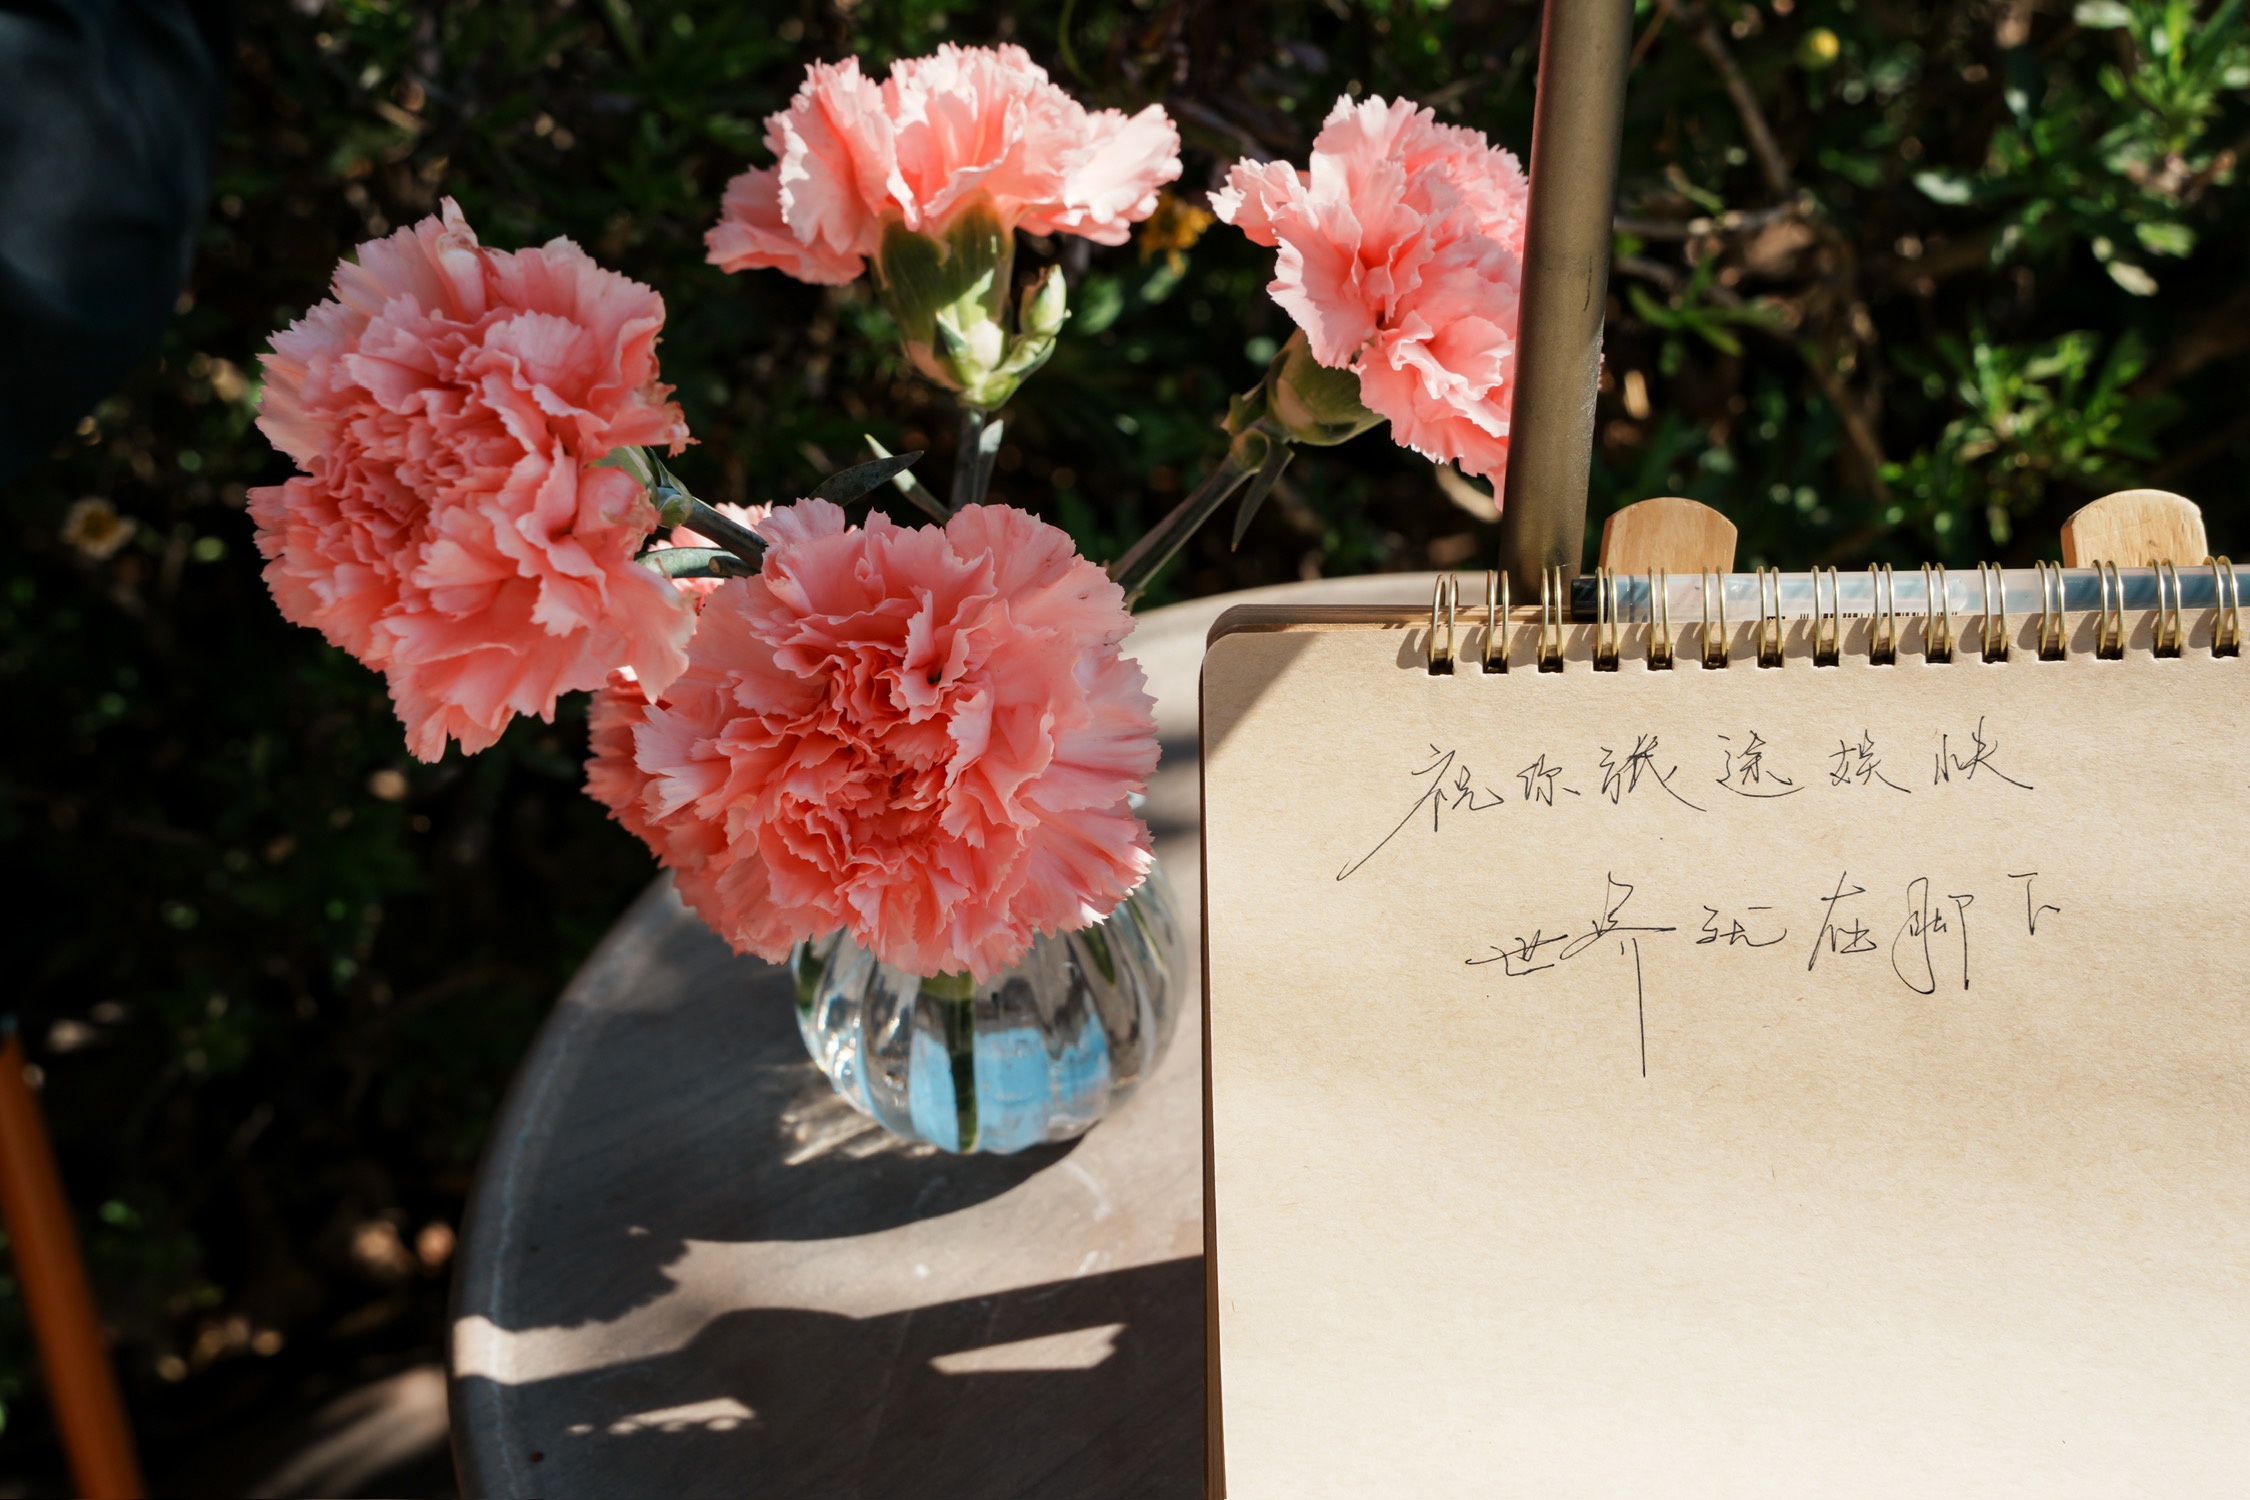 祝你旅途娱快
世界就在脚下